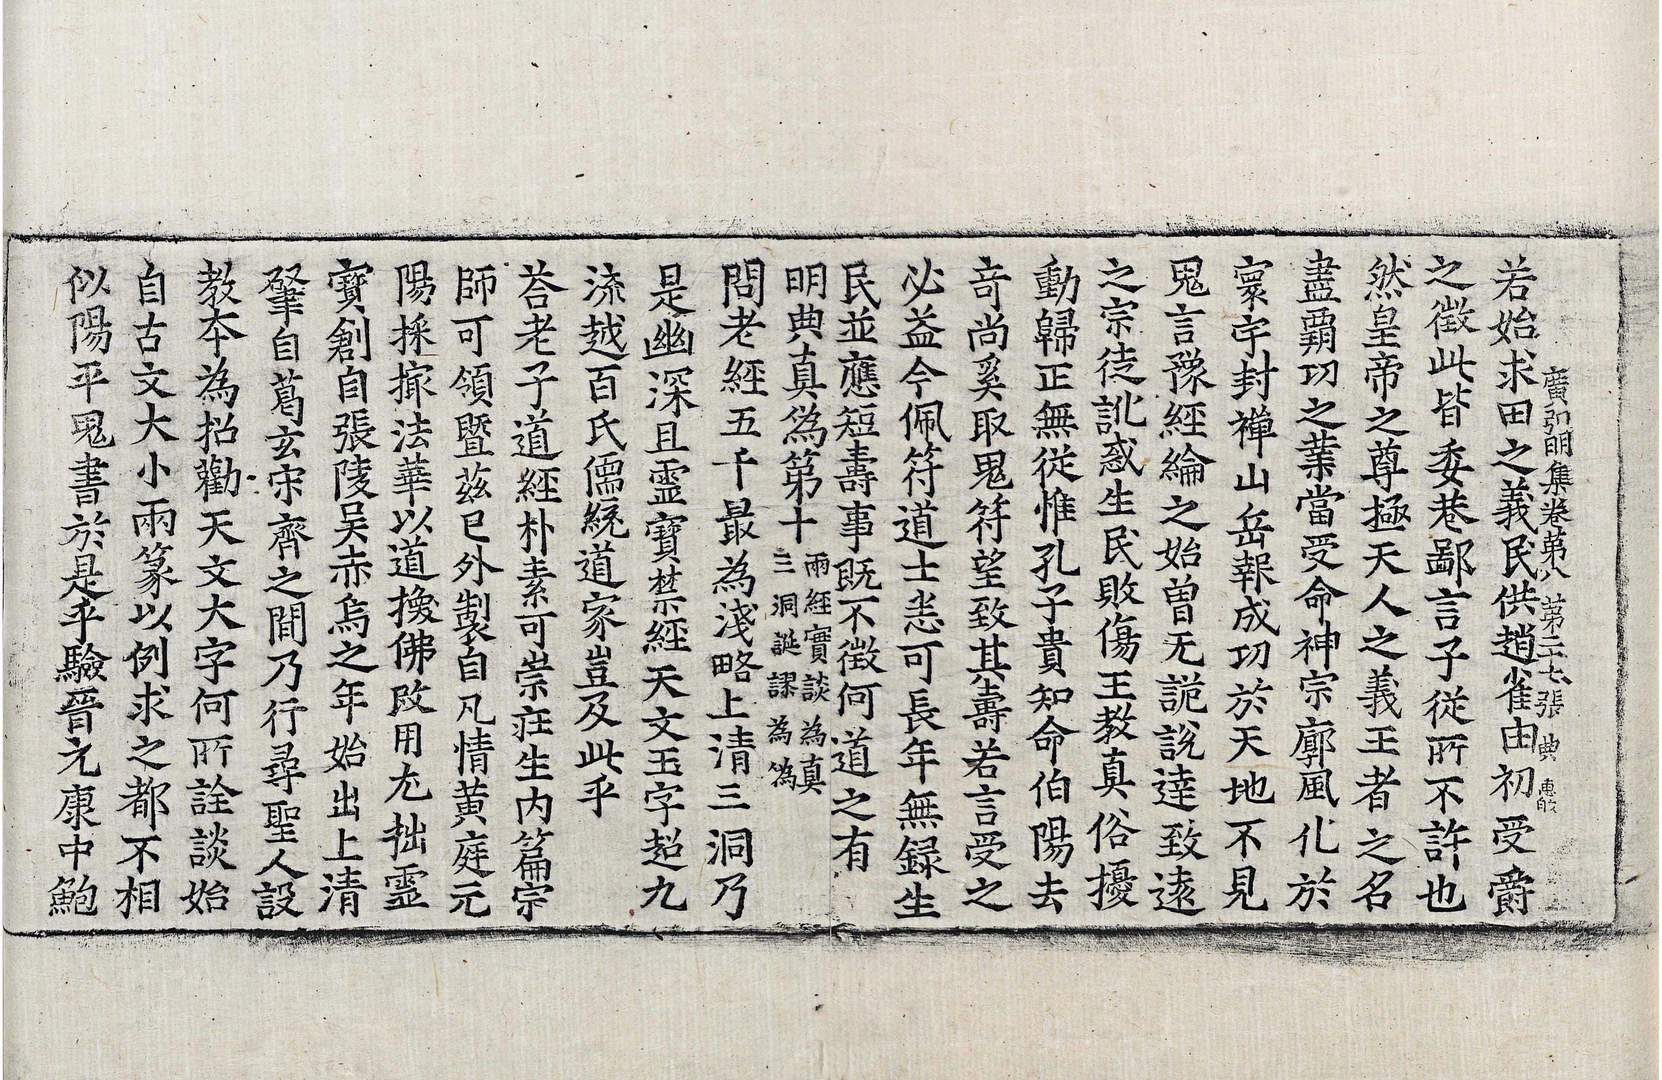 廣弘明集卷第八 第二七張 典
若始求田之義民供趙雀由初受爵
之徵此皆委巷鄙言子從所不許也
然皇帝之尊極天人之義王者之名
盡霸功之業當受命神宗廓風化於
寰宇封禪山岳報成功於天地不見
鬼言豫經綸之始曾无詭說達致遠
之宗徒訛惑生民敗傷王教真俗擾
動歸正無從惟孔子貴知命伯陽去
奇尚奚取鬼符望致其壽若言受之
必益今佩符道士悉可長年無録生
民並應短壽事既不徵何道之有
明典真偽第十 兩經實談為真
三洞誕謬為偽
問老經五千最為淺略上清三洞乃
是幽深且靈寶禁經天文玉字超九
流越百氏儒統道家豈及此乎
荅老子道經朴素可崇莊生內篇宗
師可領暨茲已外製自凡情黃庭元
陽採撮法華以道換佛改用尤拙靈
寶創自張陵吳赤烏之年始出上清
肇自葛玄宋齊之間乃行尋聖人設
教本為招勸天文大字何所詮談始
自古文大小兩篆以例求之都不相
似陽平鬼書於是乎驗晉元康中鮑